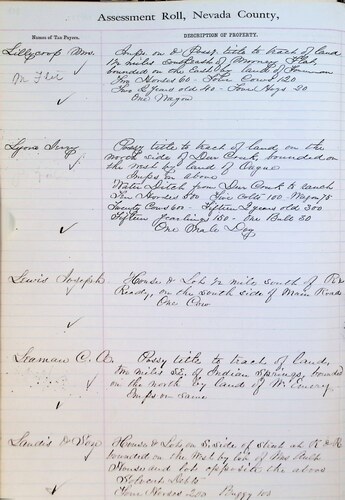 Assessment Roll, Nevada County,
Names of Tax Payers.
DESCRIPTION OF PROPERTY.
Lillycoop Wm.
Imps on & Possy. title to tract of land
1½ miles southeast of Mooney Flat,
bounded on the East by land of
Two Horses 60 - Four Cows 120
Two 2 years old 40 - Four Hogs 20
One Wagon
Lyons
Possy title to tract of land, on the
north side of Deer Creek, bounded on
the west by land of
Imps on above
Water Ditch from Deer Creek to ranch
Ten Horses 500 Two Colts 100 Wagon 75
Twenty Cows 600 - Fifteen 2 years old 300
Fifteen yearlings 150 - One Bull 30
One Male Dog
Lewis Joseph
House & Lot ½ mile south of
Ready, on the south side of Main Road
One Cow
Leaman C. A.
Possy title to tract of land,
miles of Indian Springs, bounded
on the north by land of W. Emery
Imps on same
Landis &
House & Lot on S. side of street at R & R
bounded on the West by lot of
House and lot opposite the above
Four Horses 200 Buggy 100